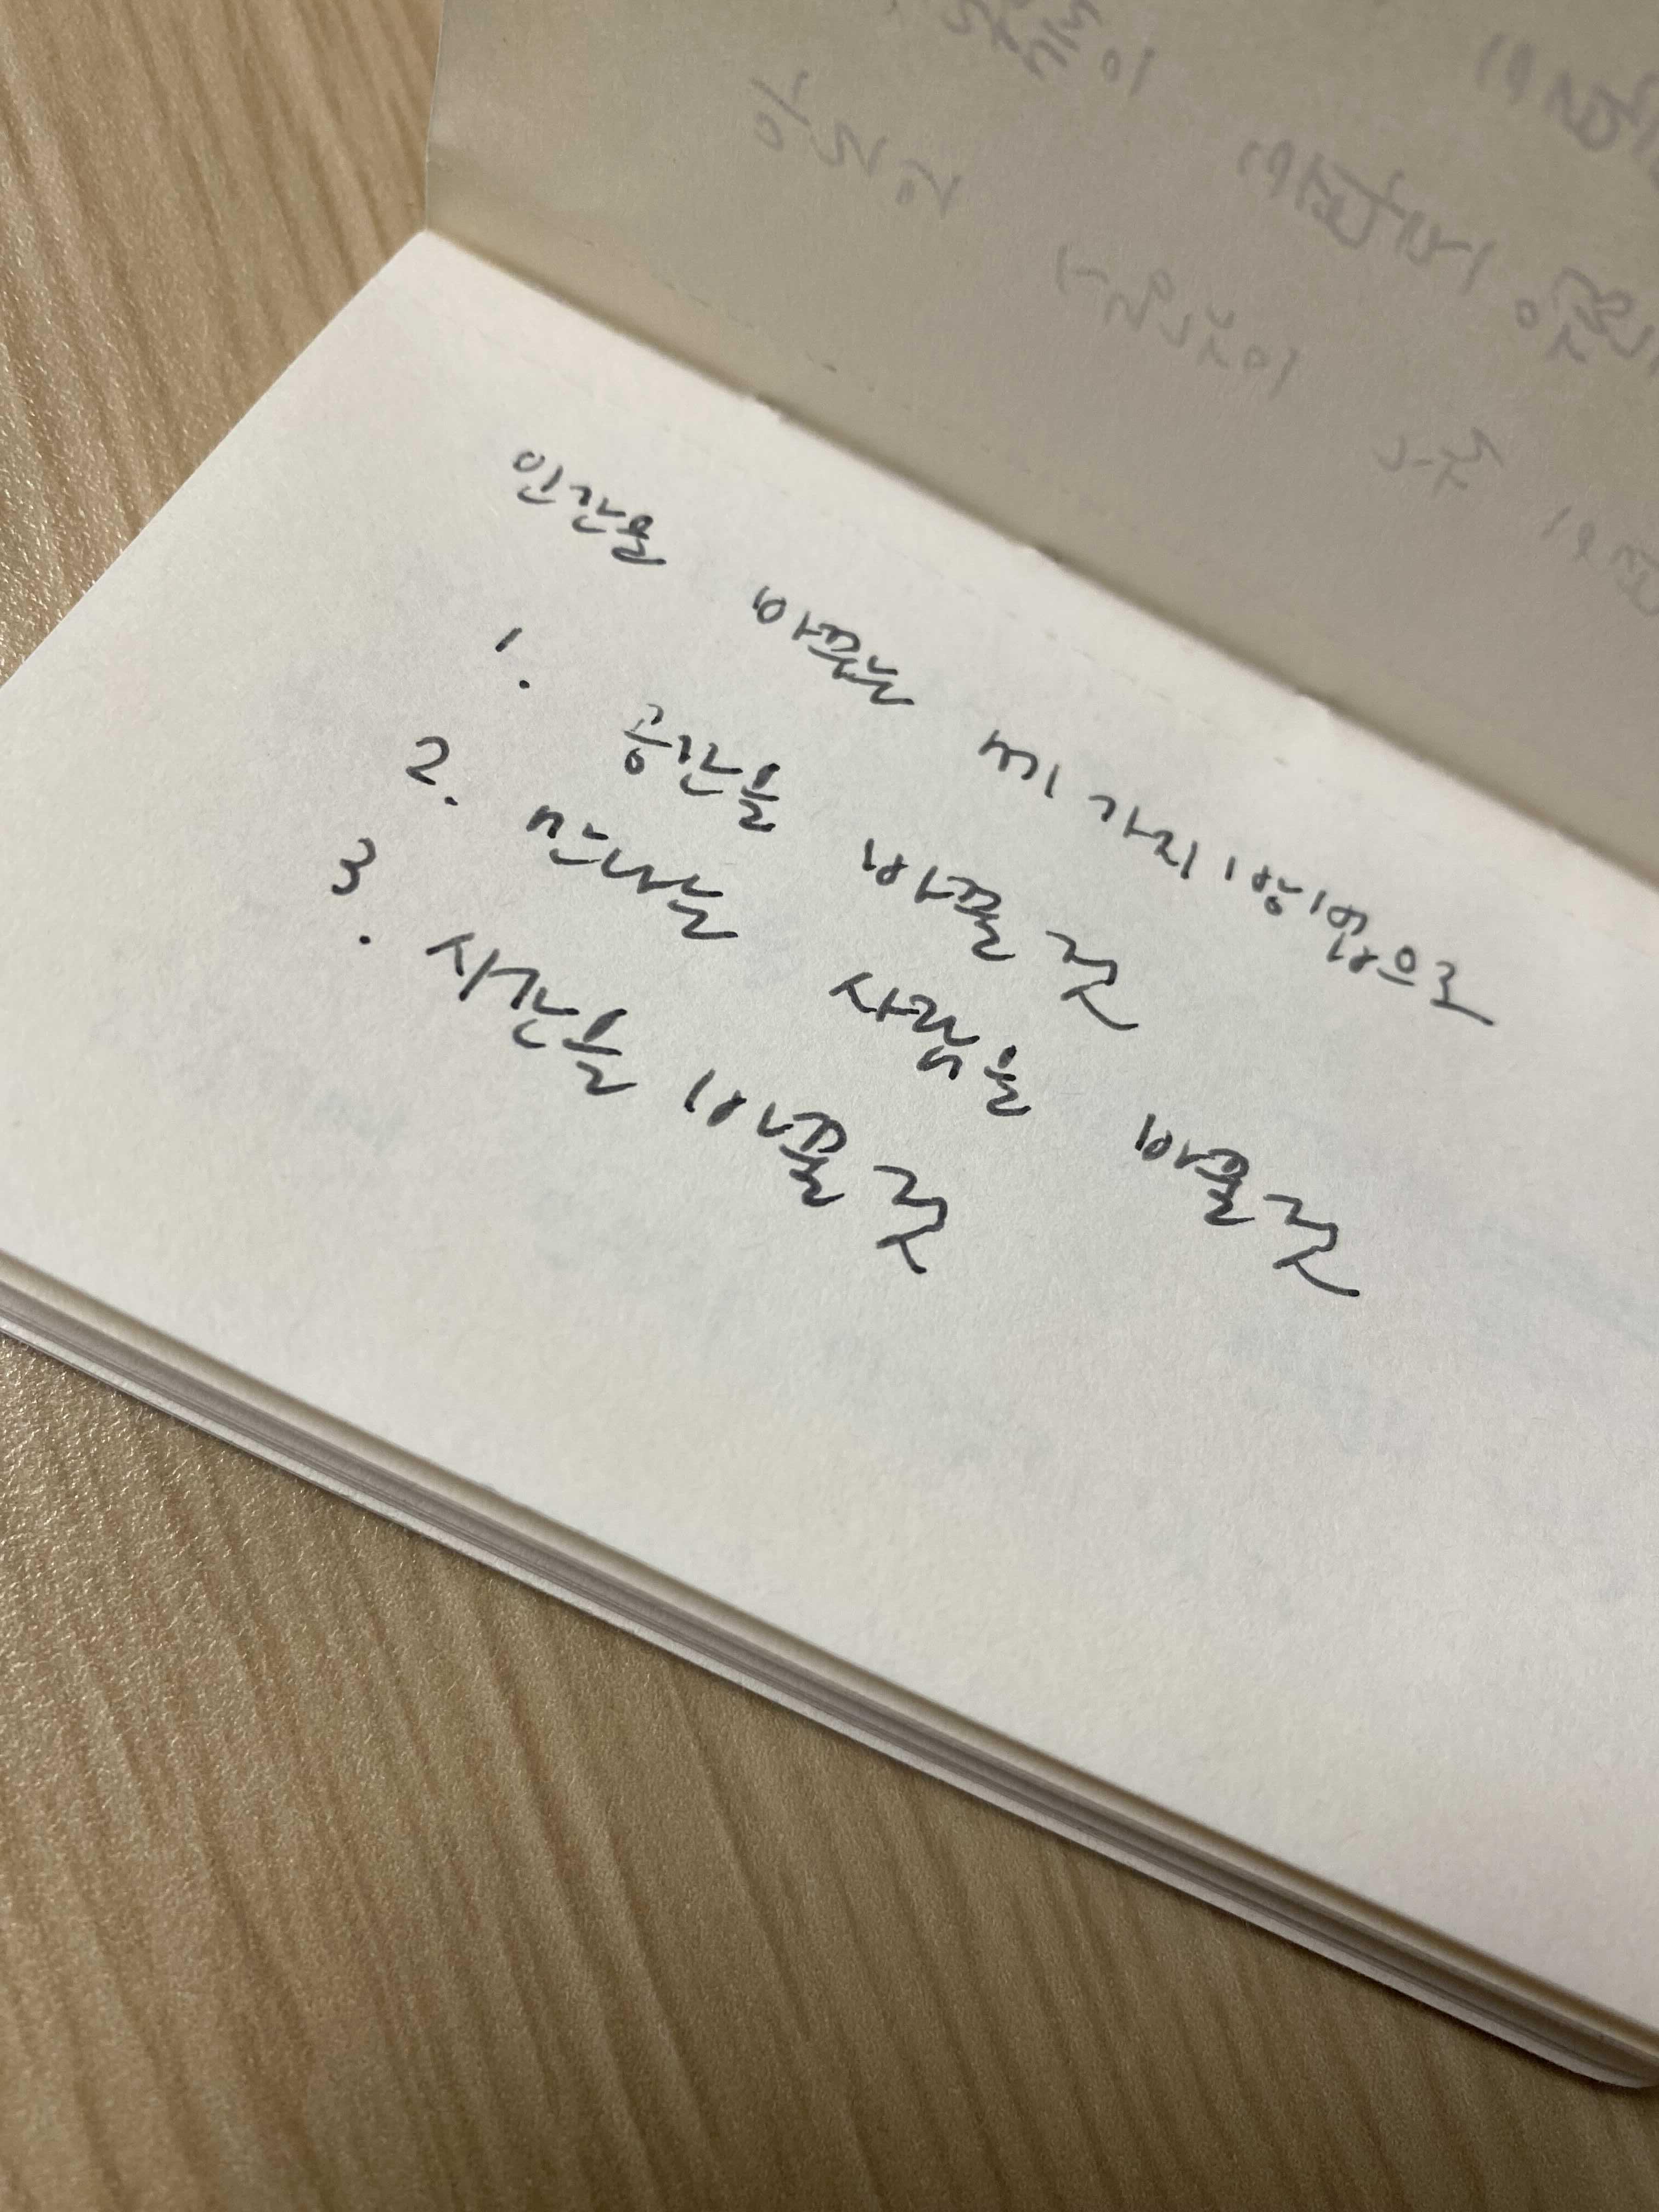 인간을 바꾸는 세 가지 방법으로
1. 공간을 바꿀 것
2. 만나는 사람을 바꿀 것
3. 시간을 바꿀 것